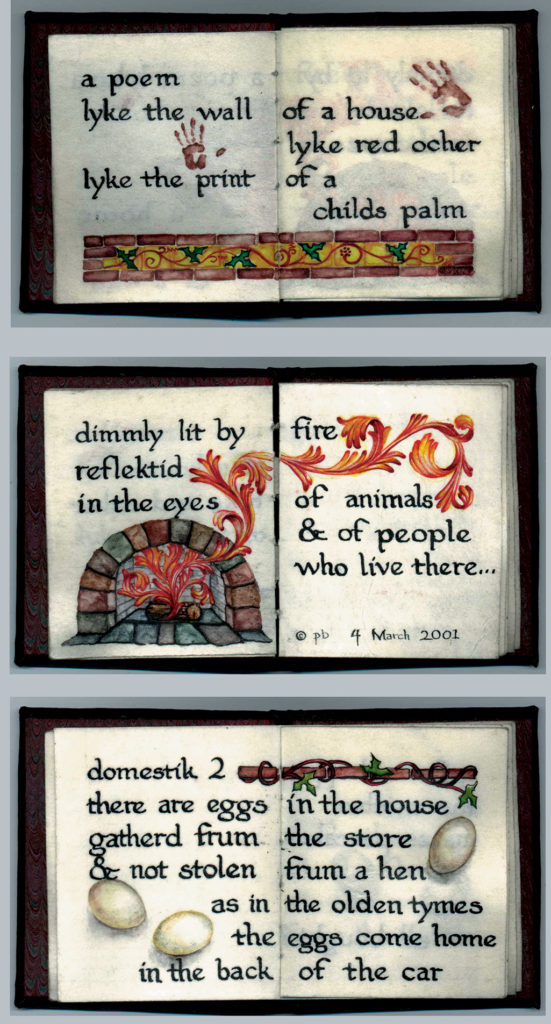 a poem
lyke the wall of a house
lyke red ocher
lyke the print of a
childs palm
dimmly lit by fire
reflektid
in the eyes of animals
& of people
who live there...
© pb 4 March 2001
domestik 2
there are eggs in the house
gatherd frum the store
& not stolen frum a hen
as in the olden tymes
the eggs come home
in the back of the car